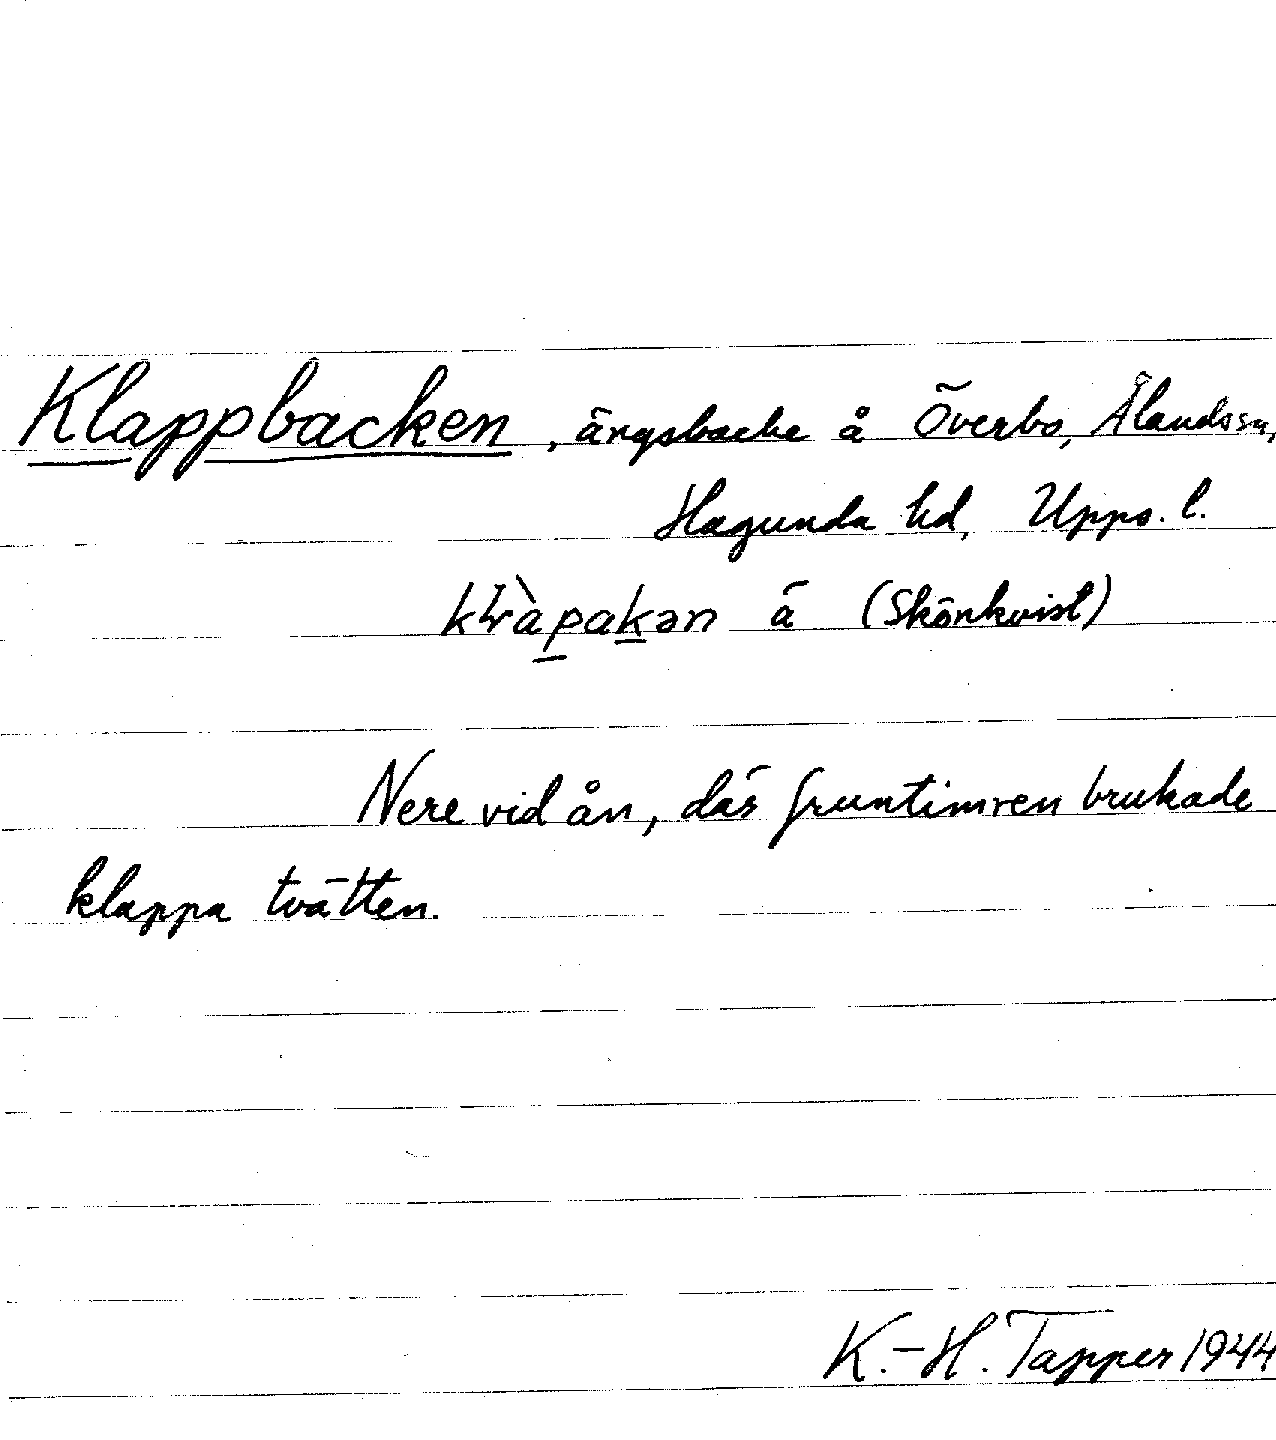 Klappbacken, ängsbacke å Överbo, Ålandssn,
Hagunda hd, Upps. l.
à (Skönkvist)
Nere vid ån, där fruntimren brukade
klappa tvätten.
K.-H. Tapper 1944